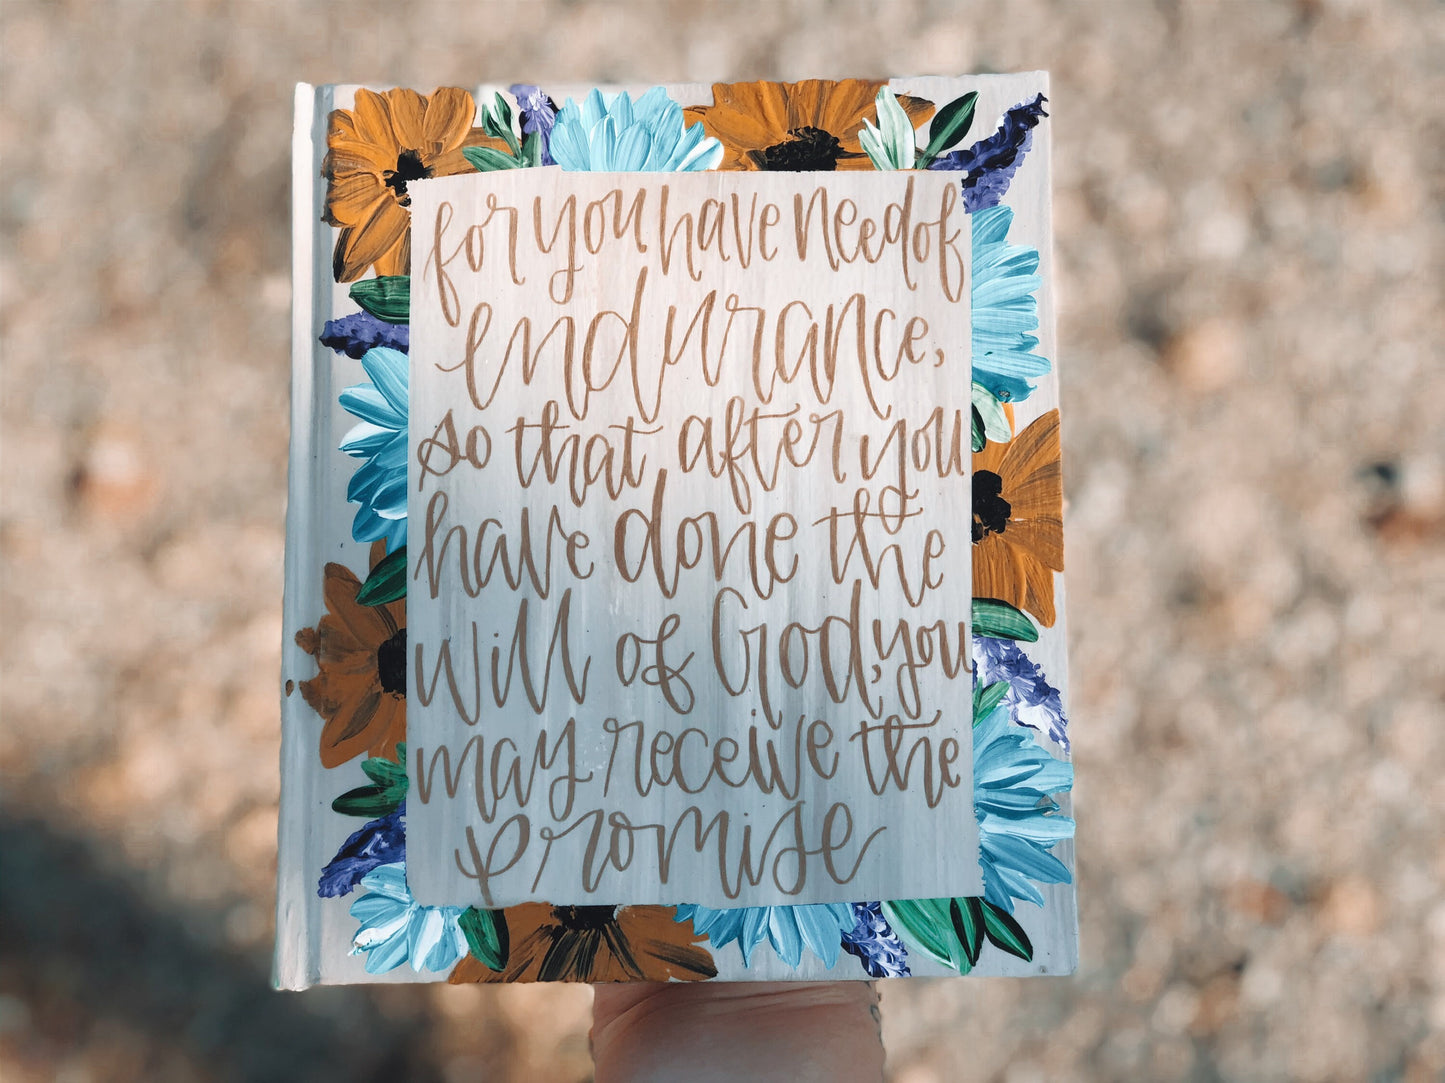 for you have need of
endurance,
so that after you
have done the
will of God, you
may receive the
promise